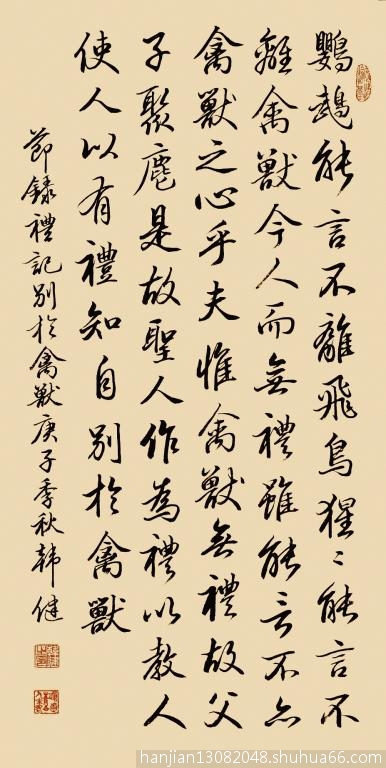 鸚鵡能言不離飛鳥猩〻能言不
離禽獸今人而無禮雖能言不亦
禽獸之心乎夫惟禽獸無禮故父
子聚麀是故聖人作為禮以教人
使人以有禮知自別於禽獸
節錄禮記別於禽獸庚子季秋韩健
hanjian13082048.shuhua66.com